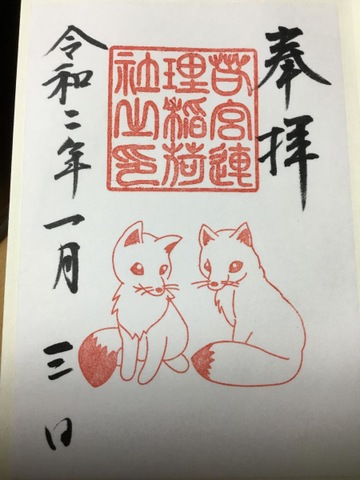 奉拝
若宮連
理稲荷
社之印
令和二年一月三日